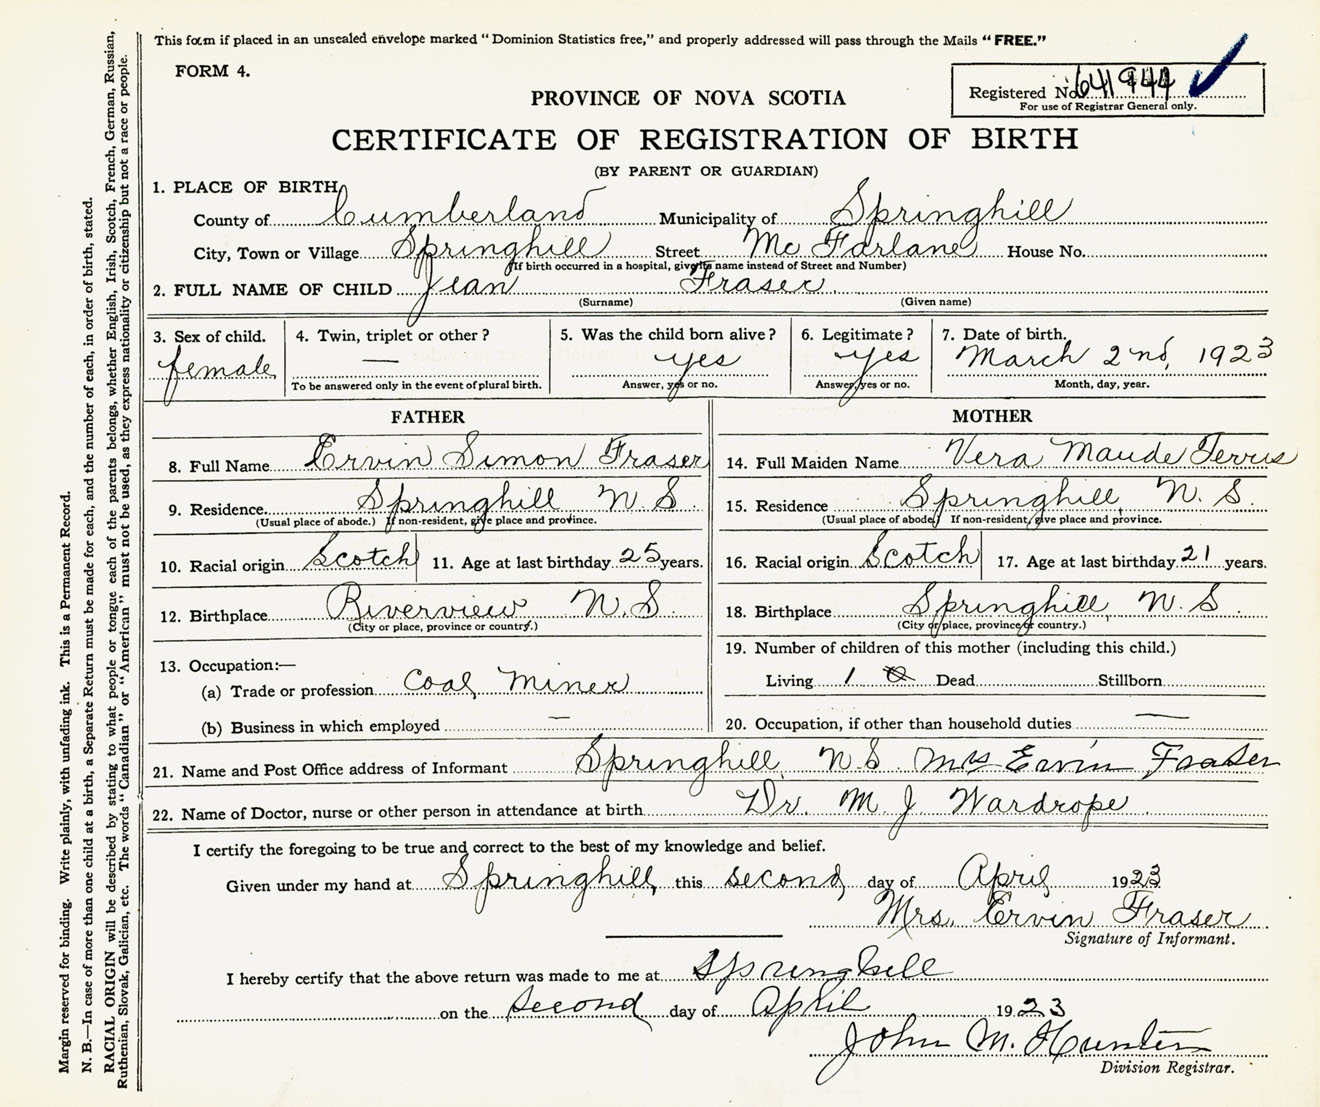 This form if placed in an unsealed envelope marked "Dominion Statistics free," and properly addressed will pass through the Mails "FREE."
FORM 4.
Registered No. 641944
For use of Registrar General only.
PROVINCE OF NOVA SCOTIA
CERTIFICATE OF REGISTRATION OF BIRTH
(BY PARENT OR GUARDIAN)
1. PLACE OF BIRTH
County of Cumberland Municipality of Springhill
City, Town or Village Springhill Street Mc Farlane House No.
(If birth occurred in a hospital, give its name instead of Street and Number)
2. FULL NAME OF CHILD Jean Fraser
(Surname) (Given name)
3. Sex of child. 4. Twin, triplet or other? 5. Was the child born alive? 6. Legitimate? 7. Date of birth.
female — yes yes March 2nd, 1923
To be answered only in the event of plural birth. Answer, yes or no. Answer, yes or no. Month, day, year.
FATHER MOTHER
8. Full Name Ervin Simon Fraser 14. Full Maiden Name Vera Maude Terris
9. Residence. Springhill N S 15. Residence Springhill, N. S.
(Usual place of abode.) If non-resident, give place and province. (Usual place of abode.) If non-resident, give place and province.
10. Racial origin Scotch 11. Age at last birthday 25 years. 16. Racial origin Scotch 17. Age at last birthday 21 years.
12. Birthplace Riverview N.S. 18. Birthplace Springhill N. S.
(City or place, province or country.) (City or place, province or country.)
13. Occupation:— 19. Number of children of this mother (including this child.)
(a) Trade or profession Coal Miner Living 1 Dead Stillborn
(b) Business in which employed — 20. Occupation, if other than household duties —
21. Name and Post Office address of Informant Springhill N.S. Mrs Ervin Fraser
22. Name of Doctor, nurse or other person in attendance at birth Dr. M. J. Wardrope
I certify the foregoing to be true and correct to the best of my knowledge and belief.
Given under my hand at Springhill, this second day of April 1923
Mrs. Ervin Fraser
Signature of Informant.
I hereby certify that the above return was made to me at Springhill
on the second day of April 1923
John M. Hunter
Division Registrar.
Margin reserved for binding. Write plainly, with unfading ink. This is a Permanent Record.
N. B.—In case of more than one child at a birth, a Separate Return must be made for each, and the number of each, in order of birth, stated.
RACIAL ORIGIN will be described by stating to what people or tongue each of the parents belongs, whether English, Irish, Scotch, French, German, Russian,
Ruthenian, Slovak, Galician, etc. The words "Canadian" or "American" must not be used, as they express nationality or citizenship but not a race or people.